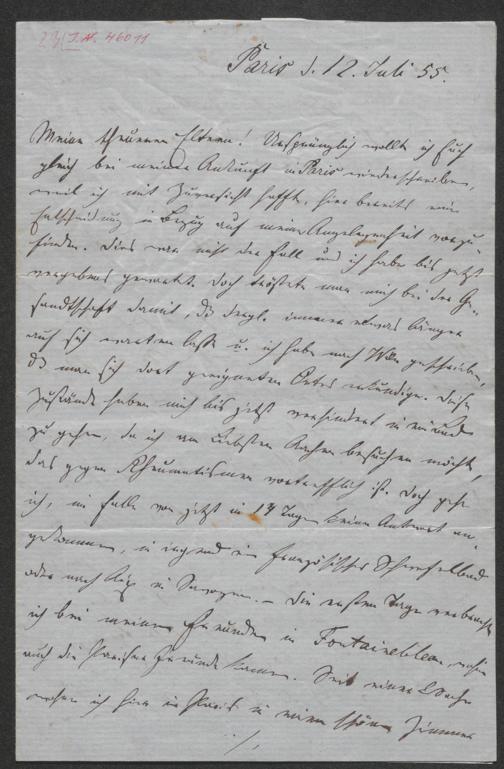 I.N. 46011
Paris d. 12. Juli 55.
Meine theueren Eltern! Ursprünglich wollte ich Euch
gleich bei meiner Ankunft in Paris wiederschreiben,
weil ich mit Zuversicht hoffte, hier bereits eine
Entscheidung in Bezug auf meine Angelegenheit vorzu-
finden. Dies war nicht der Fall und ich habe bis jetzt
vergebens gewartet. Doch tröstete man mich bei der Ge-
sandtschaft damit, daß dergl. immer etwas länger
auf sich warten lasse u. ich habe nach Wien geschrieben,
daß man sich dort geeigneten Ortes erkundige. Diese
Zustände haben mich bis jetzt verhindert in ein Bad
zu gehen, da ich am liebsten Aachen besuchen möchte,
das gegen Rheumatismen vortrefflich ist. Doch gehe
ich, im Falle von jetzt in 14 Tagen keine Antwort an-
gekommen, in irgend ein französisches Schwefelbad
oder nach Aix in Savoyen. – Die ersten Tage verbrachte
ich bei meinen Freunden in Fontainebleau, wohin
auch die Pariser Freunde kamen. Seit einer Woche
wohne ich hier in Paris in einem schönen Zimmer
./.